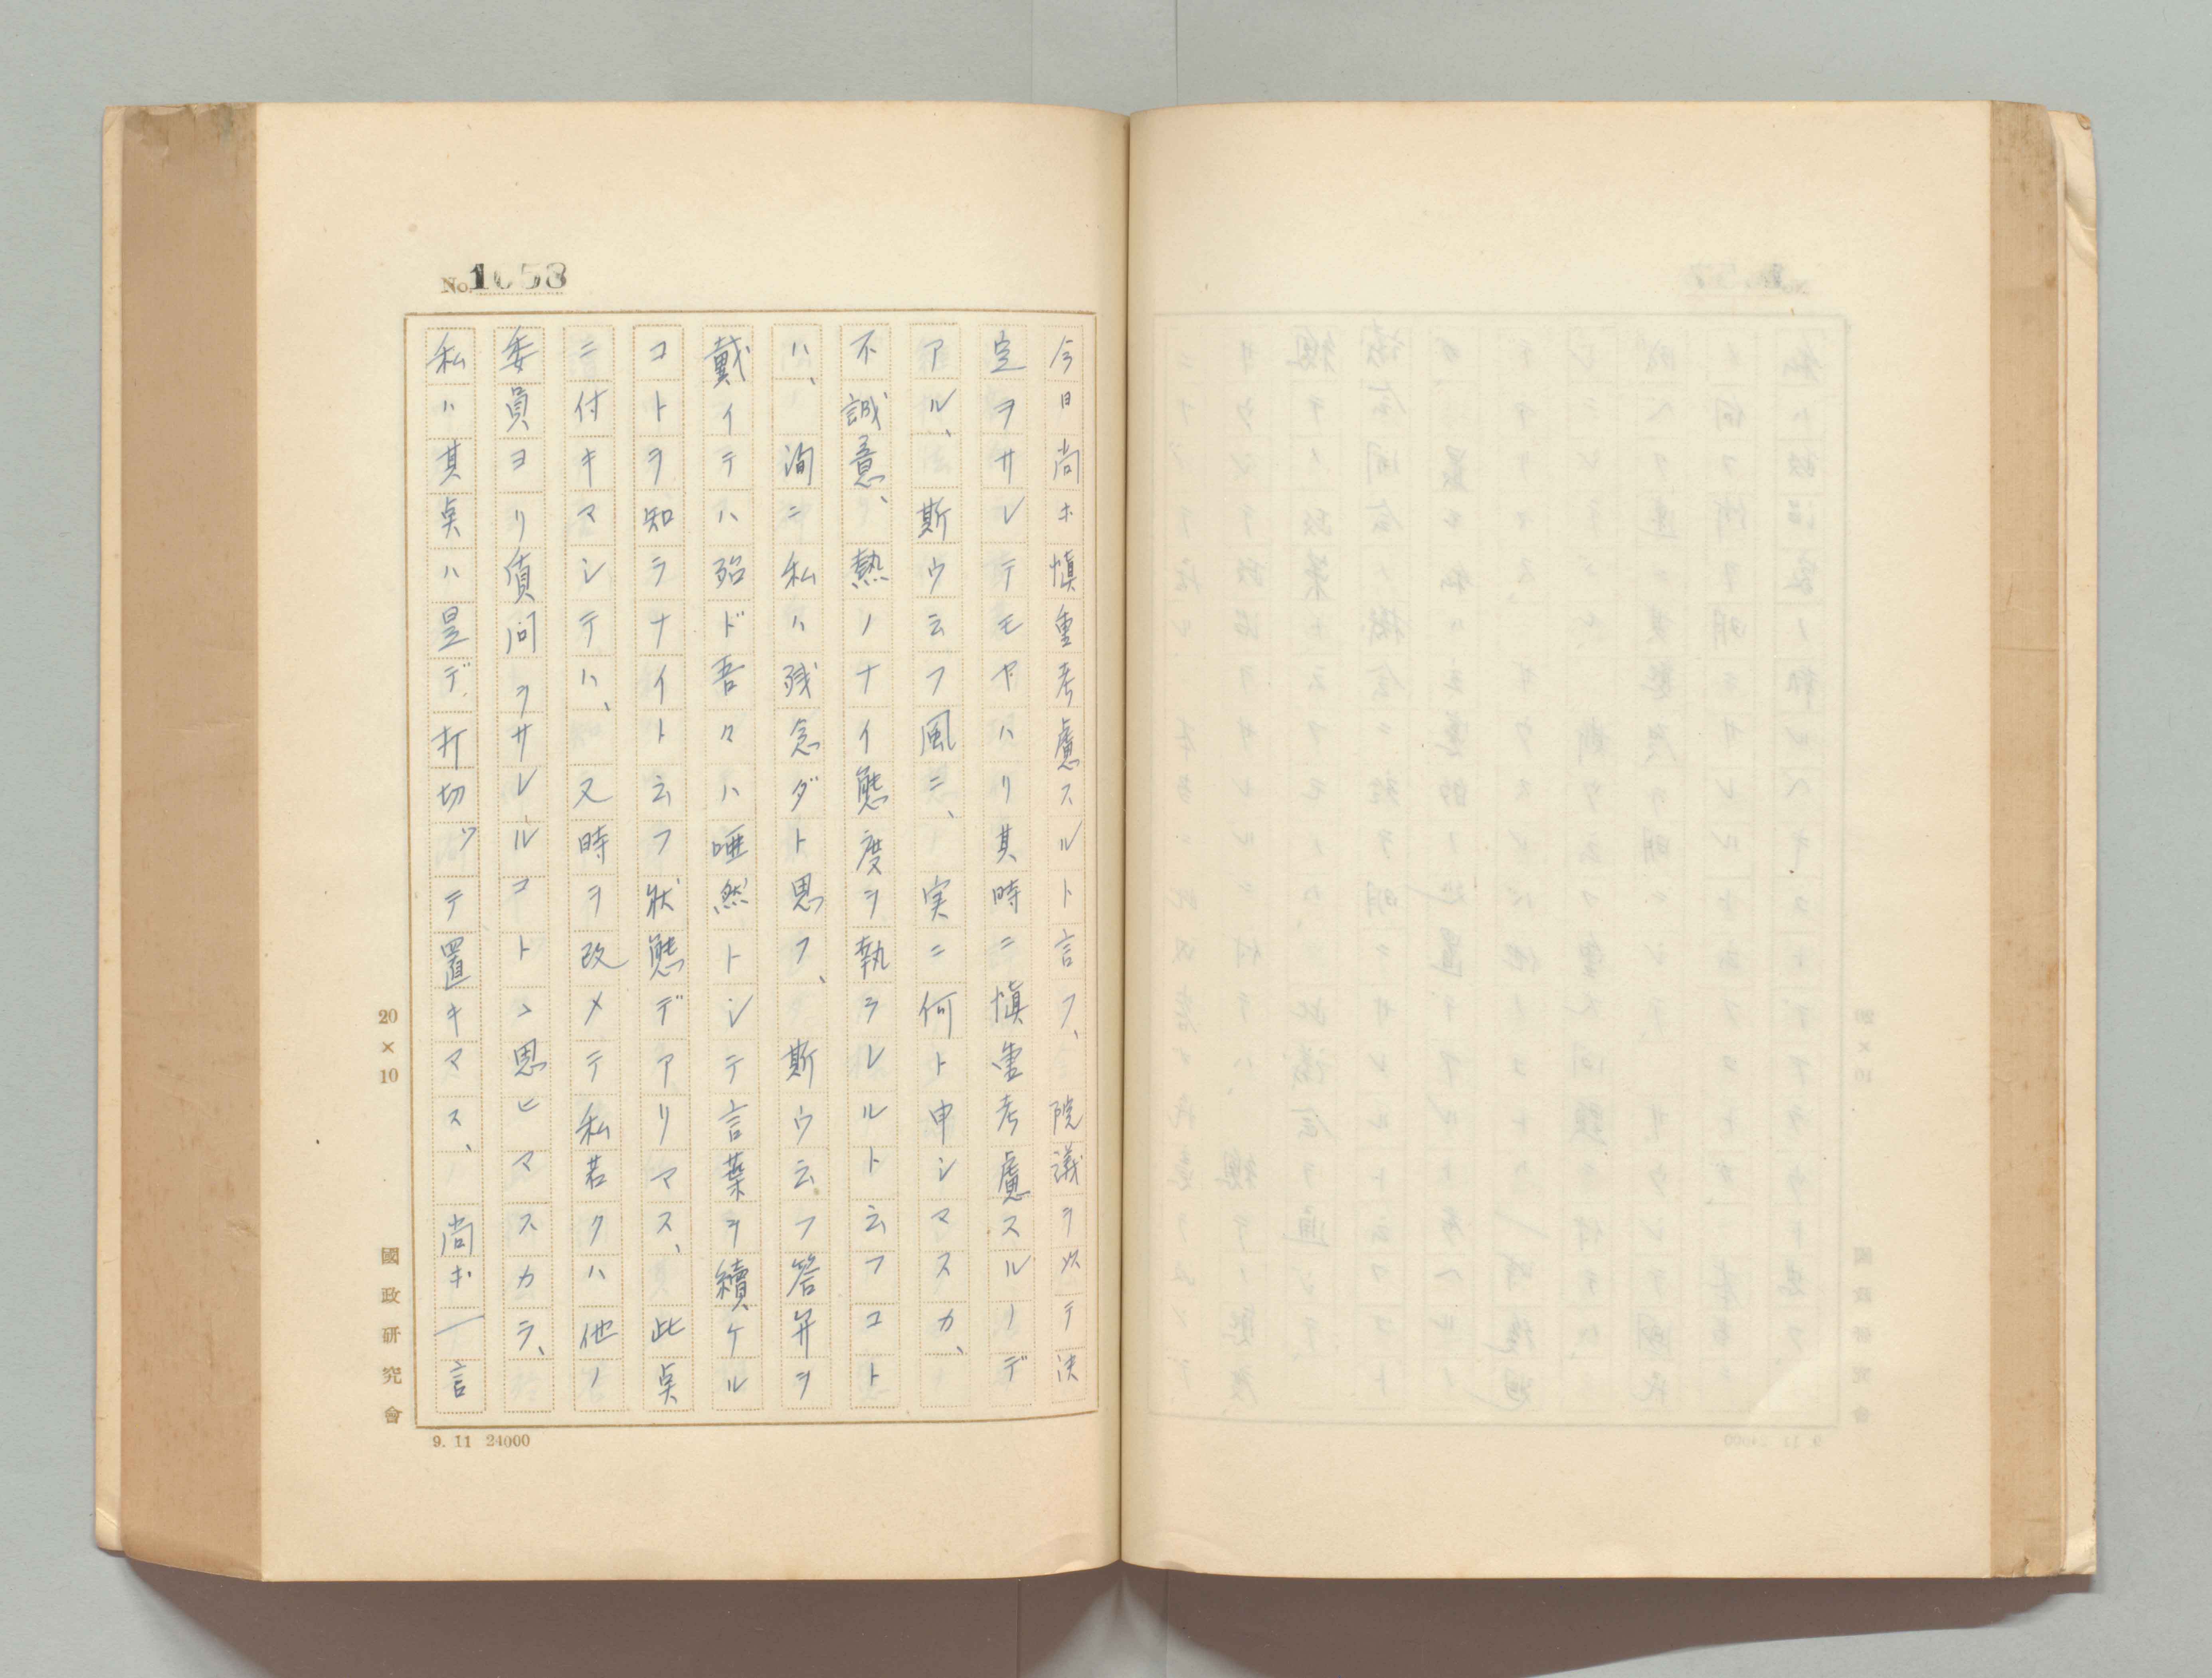 No. 1058
今日尚ホ慎重考慮スルト言フ、院議ヲ以テ決
定ヲサレテモヤハリ其時ニ慎重考慮スルノデ
アル、斯ウ云フ風ニ、実ニ何ト申シマスカ、
不誠意、熱ノナイ態度ヲ執ラレルト云フコト
ハ、洵ニ私ハ残念ダト思フ、斯ウ云フ答弁ヲ
戴イテハ殆ド吾々ハ唖然トシテ言葉ヲ續ケル
コトヲ知ラナイト云フ状態デアリマス、此点
ニ付キマシテハ、又時ヲ改メテ私若クハ他ノ
委員ヨリ質問ヲサレルコトヽ思ヒマスカラ、
私ハ其点ハ是デ打切ツテ置キマス、尚ホ一言
20×10
國政研究會
9. 11 24000